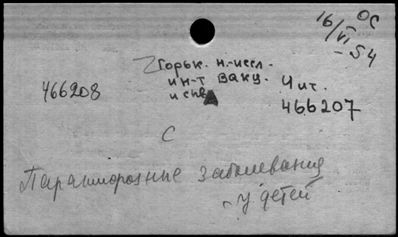 16/VI-54
ОС
Горьк. н.-иссл.
ин-т вакц.
и сыв
466208
Чит.
466207
С
Параллорозные заболевания
у детей